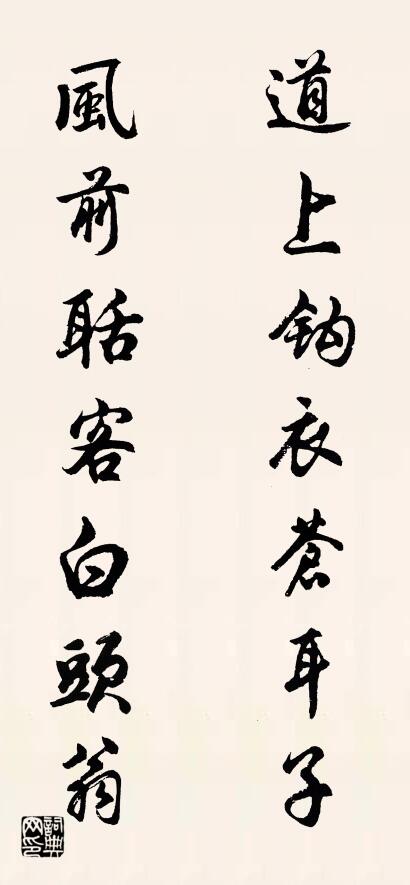 道上鈎衣蒼耳子
風前聒客白頭翁
詞典网印